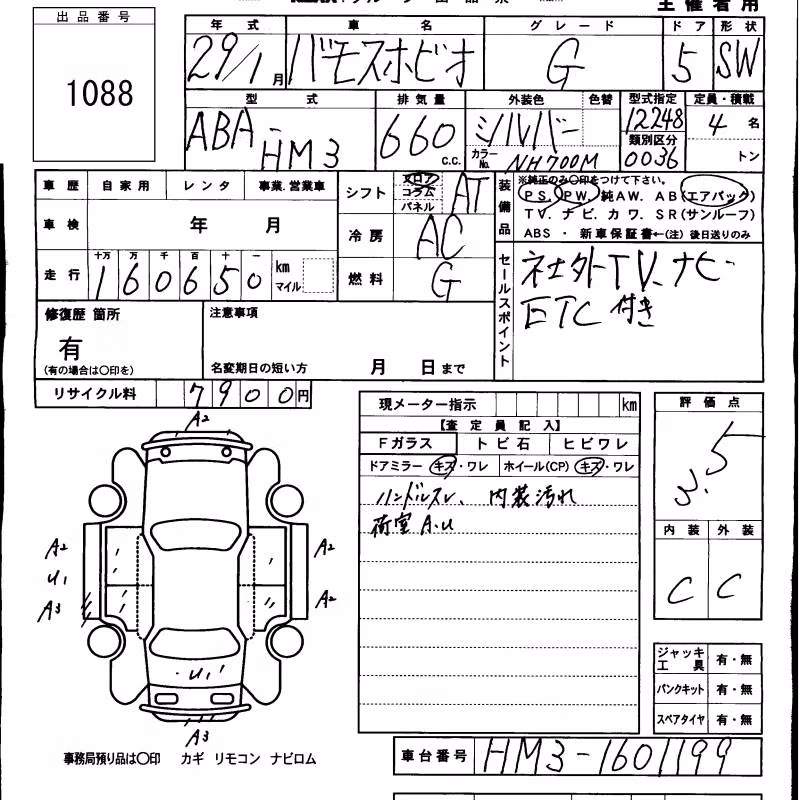 主催者用
出品番号
1088
年式 車名 グレード ドア 形状
29/1月 バモスホビオ G 5 SW
型式 排気量 外装色 色替 型式指定 定員・積載
ABA-HM3 660 c.c. シルバー 12248 4名
カラーNo. NH700M 類別区分 0036 トン
車歴 自家用 レンタ 事業.営業車
車検 年 月
走行 十万 万 千 百 十 一
160650 km マイル
シフト フロア コラム パネル AT
冷房 AC
燃料 G
装備品 ※純正のみ〇印をつけて下さい。
PS. PW. 純AW. AB(エアバック)
TV. ナビ. カワ. SR(サンルーフ)
ABS ・ 新車保証書←(注) 後日送りのみ
セールスポイント
社外TV.ナビ
ETC 付き
修復歴 箇所
有
(有の場合は〇印を)
注意事項
名変期日の短い方 月 日まで
リサイクル料 7900円
現メーター指示 km
【査定員記入】
Fガラス トビ石 ヒビワレ
ドアミラー キズ・ワレ ホイール(CP) キズ・ワレ
ハンドルスレ、内装汚れ
荷室 A.U
評価点
3.5
内装 外装
C C
A2
A2 A2
U1
A3 A2
U1
A3
ジャッキ工具 有・無
パンクキット 有・無
スペアタイヤ 有・無
事務局預り品は〇印 カギ リモコン ナビロム
車台番号 HM3-1601199